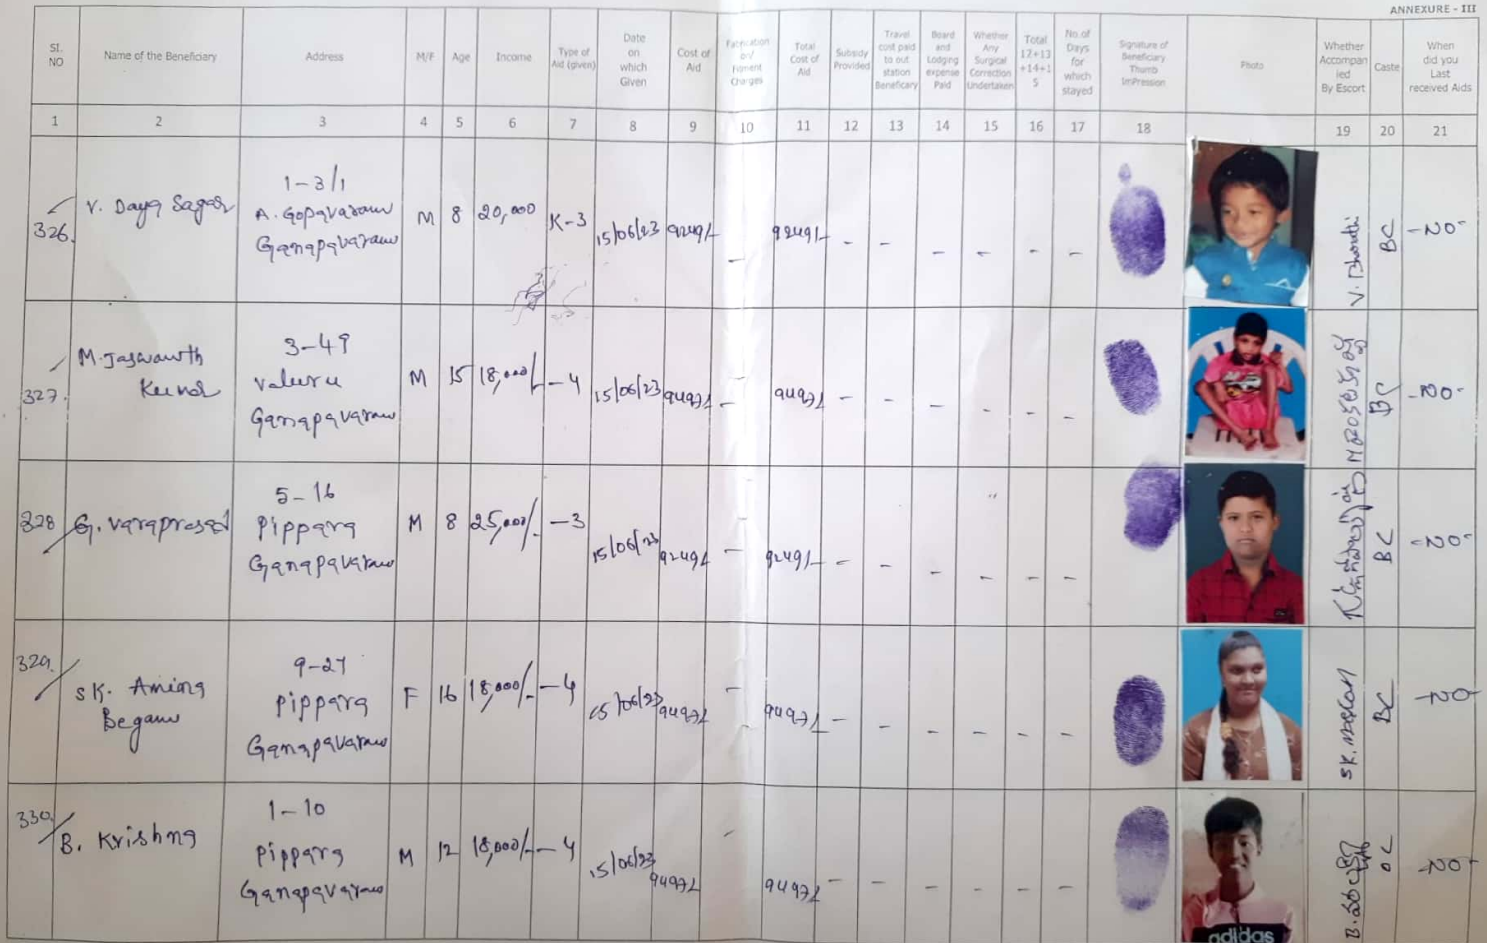 ANNEXURE - III
Sl. NO | Name of the Beneficiary | Address | M/F | Age | Income | Type of Aid (given) | Date on which Given | Cost of Aid | Fabrication on/ Fitment Charges | Total Cost of Aid | Subsidy Provided | Travel cost paid to out station Beneficiary | Board and Lodging expense Paid | Whether Any Surgical Correction Undertaken | Total 12+13+14+15 | No.of Days for which stayed | Signature of Beneficiary Thumb ImPression | Photo | Whether Accompanied By Escort | Caste | When did you Last received Aids
1 2 3 4 5 6 7 8 9 10 11 12 13 14 15 16 17 18 19 20 21
326. V. Daya Sagar | 1-3/1 A. Gopavaram Ganapavaram | M | 8 | 20,000 | K-3 | 15/06/23 | 9249/- | - | 9249/- | - | - | - | - | - | - | V. Bharathi | BC | -NO-
327. M. Jaswanth Kumar | 3-49 Valuru Ganapavaram | M | 15 | 18,000/- | -4 | 15/06/23 | 9497/- | - | 9497/- | - | - | - | - | - | - | BC | -NO-
328 G. Varaprasad | 5-16 Pippara Ganapavaram | M | 8 | 25,000/- | -3 | 15/06/23 | 9249/- | - | 9249/- | - | - | - | - | - | - | BC | -NO-
329. SK. Amina Begam | 9-27 Pippara Ganapavaram | F | 16 | 18,000/- | -4 | 15/06/23 | 9497/- | - | 9497/- | - | - | - | - | - | - | SK. | BC | -NO-
330. B. Krishna | 1-10 Pippara Ganapavaram | M | 12 | 18,000/- | -4 | 15/06/23 | 9497/- | - | 9497/- | - | - | - | - | - | - | B. | OC | -NO-
adidas